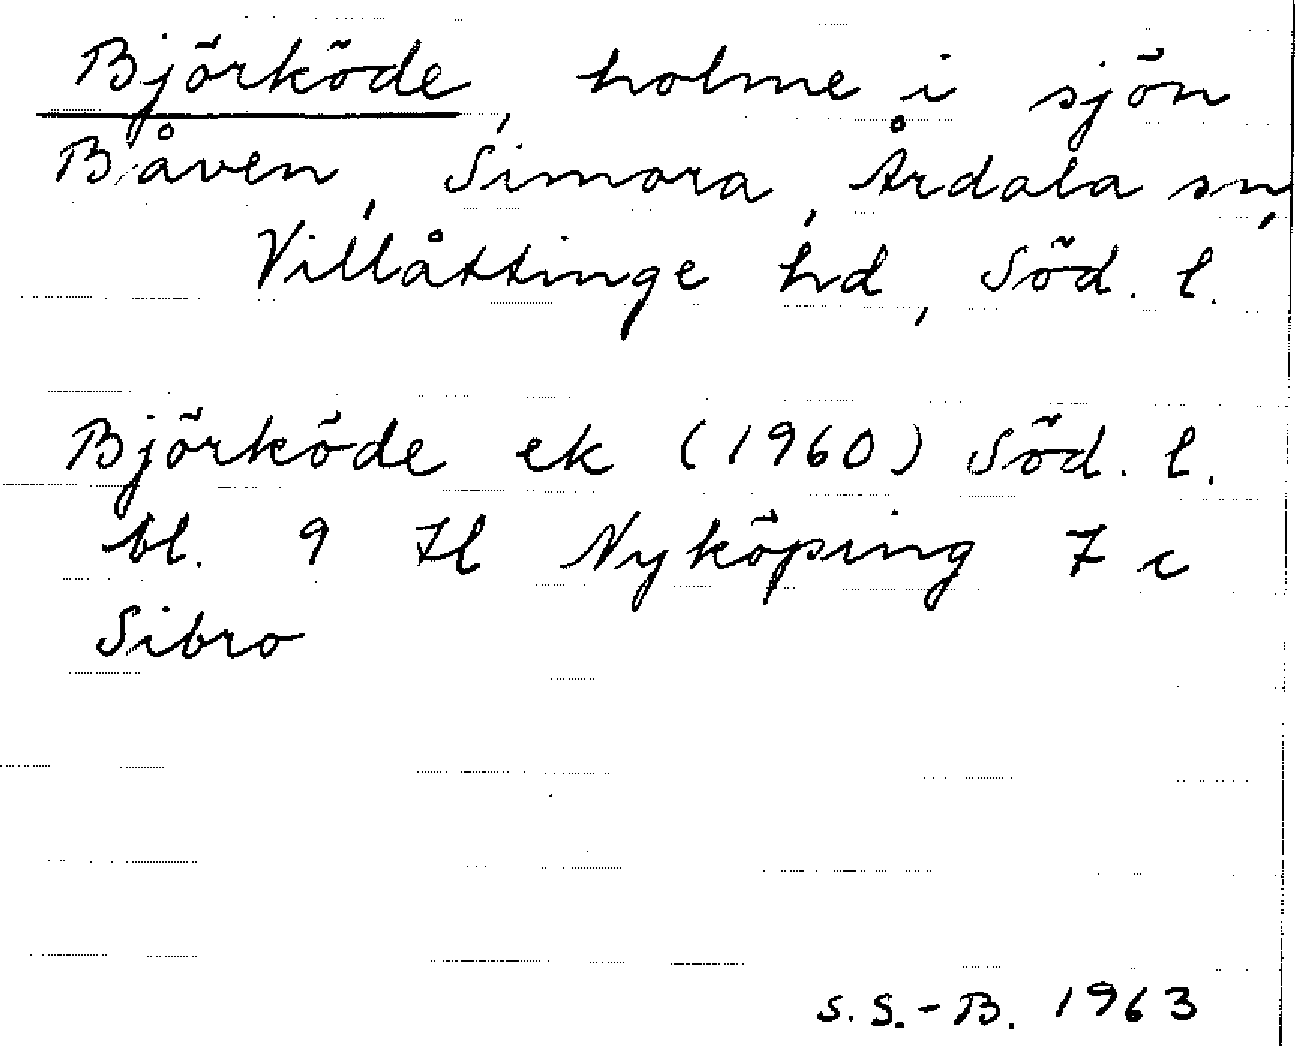 Björköde, holme i sjön
Båven, Simora, Årdala sn,
Villåttinge hd, Söd. l.
Björköde ek (1960) Söd. l.
bl. 9 H Nyköping 7 c
Sibro
S. S.-B. 1963